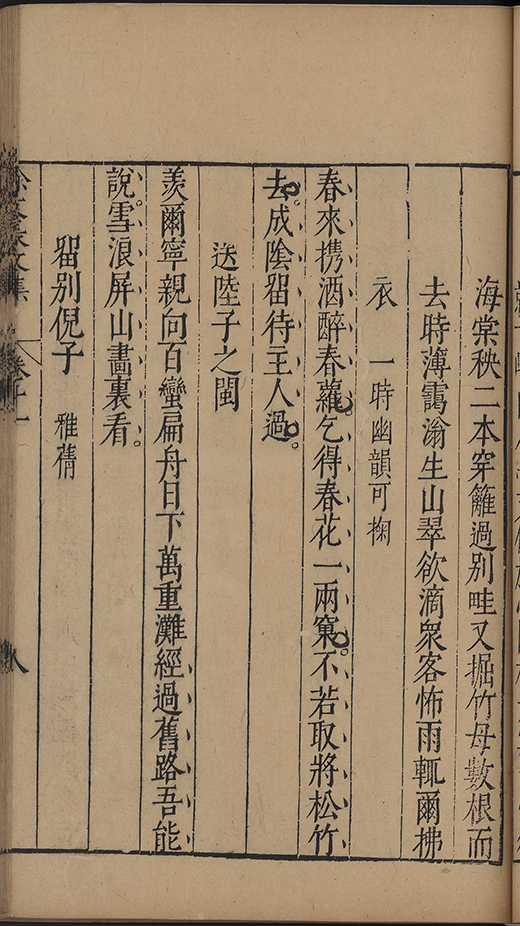 海棠秧二本穿籬過別畦又掘竹母數根而
去時薄靄滃生山翠欲滴衆客怖雨輒爾拂
衣　一時幽韻可掬
春來携酒醉春蘿乞得春花一兩窠不若取將松竹
去成陰留待主人過
送陸子之閩
羡爾寧親向百蠻扁舟日下萬重灘經過舊路吾能
說雪浪屏山畫裏看
留別倪子　雅蒨
文集　卷十一　八